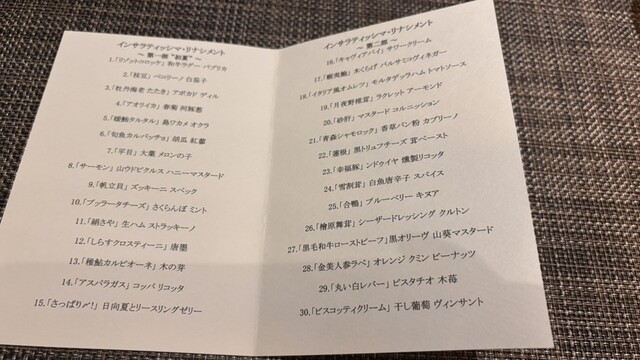 インサラティッシマ・リナシメント
～ 第一部 "初夏" ～
1.「リゾットコロッケ」 和牛ラグー パプリカ
2.「枝豆」 ペコリーノ 白茄子
3.「牡丹海老 たたき」 アボカド ディル
4.「アオリイカ」 春菊 河豚葱
5.「燻鮪タルタル」 島ワカメ オクラ
6.「旬魚カルパッチョ」 胡瓜 紅蓼
7.「平目」 大葉 メロンの子
8.「サーモン」 山ウドピクルス ハニーマスタード
9.「帆立貝」 ズッキーニ スペック
10.「ブッラータチーズ」 さくらんぼ ミント
11.「絹さや」 生ハム ストラッキーノ
12.「しらすクロスティーニ」 唐墨
13.「稚鮎カルピオーネ」 木の芽
14.「アスパラガス」 コッパ リコッタ
15.「さっぱり〆!」 日向夏とリースリングゼリー
インサラティッシマ・リナシメント
～ 第二部 ～
16.「キャヴィアパイ」 サワークリーム
17.「蝦夷鮑」 木くらげ バルサミコヴィネガー
18.「イタリア風オムレツ」 モルタデッラハム トマトソース
19.「月夜野椎茸」 ラクレット アーモンド
20.「砂肝」 マスタード コルニッション
21.「青森シャモロック」 香草パン粉 カプリーノ
22.「蓮根」 黒トリュフチーズ 茸ペースト
23.「幸福豚」 ンドゥイヤ 燻製リコッタ
24.「雪割茸」 白魚唐辛子 スパイス
25.「合鴨」 ブルーベリー キヌア
26.「檜原舞茸」 シーザードレッシング クルトン
27.「黒毛和牛ローストビーフ」 黒オリーヴ 山葵マスタード
28.「金美人参ラペ」 オレンジ クミン ピーナッツ
29.「丸い白レバー」 ピスタチオ 木苺
30.「ビスコッティクリーム」 干し葡萄 ヴィンサント